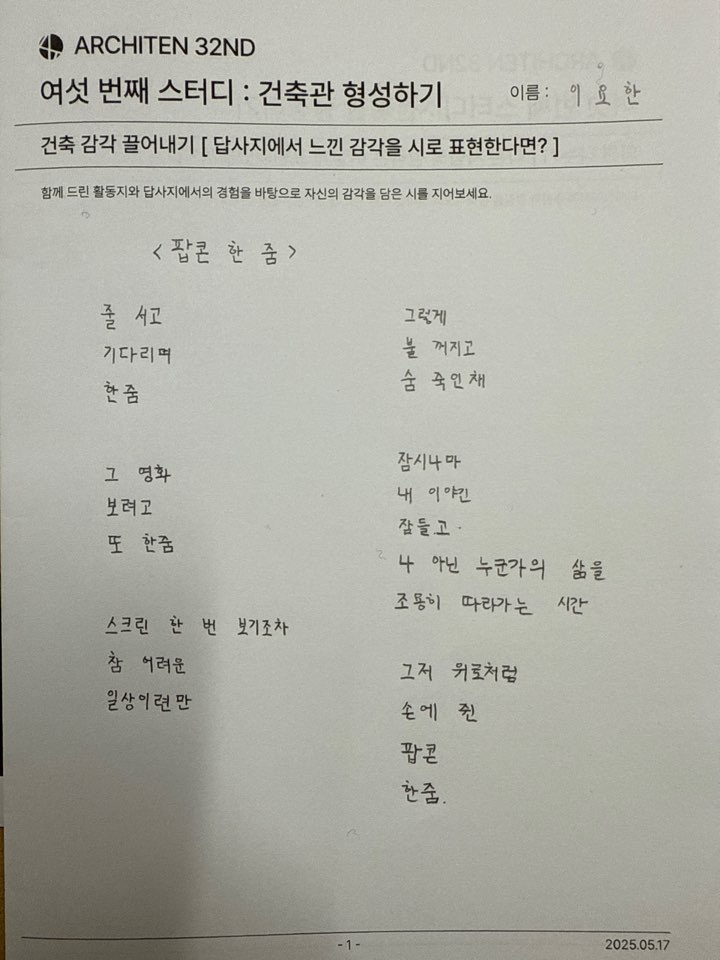 ARCHITEN 32ND
여섯 번째 스터디 : 건축관 형성하기
이름 : 이요한
건축 감각 끌어내기 [ 답사지에서 느낀 감각을 시로 표현한다면? ]
함께 드린 활동지와 답사지에서의 경험을 바탕으로 자신의 감각을 담은 시를 지어보세요.
< 팝콘 한 줌 >
줄 서고
기다리며
한줌
그 영화
보려고
또 한줌
스크린 한 번 보기조차
참 어려운
일상이련만
그렇게
불 꺼지고
숨 죽인채
잠시나마
내 이야긴
잠들고
나 아닌 누군가의 삶을
조용히 따라가는 시간
그저 위로처럼
손에 쥔
팝콘
한줌.
- 1 -
2025.05.17